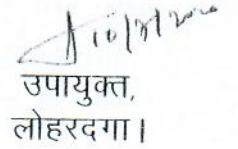 10/8/2020
उपायुक्त,
लोहरदगा।